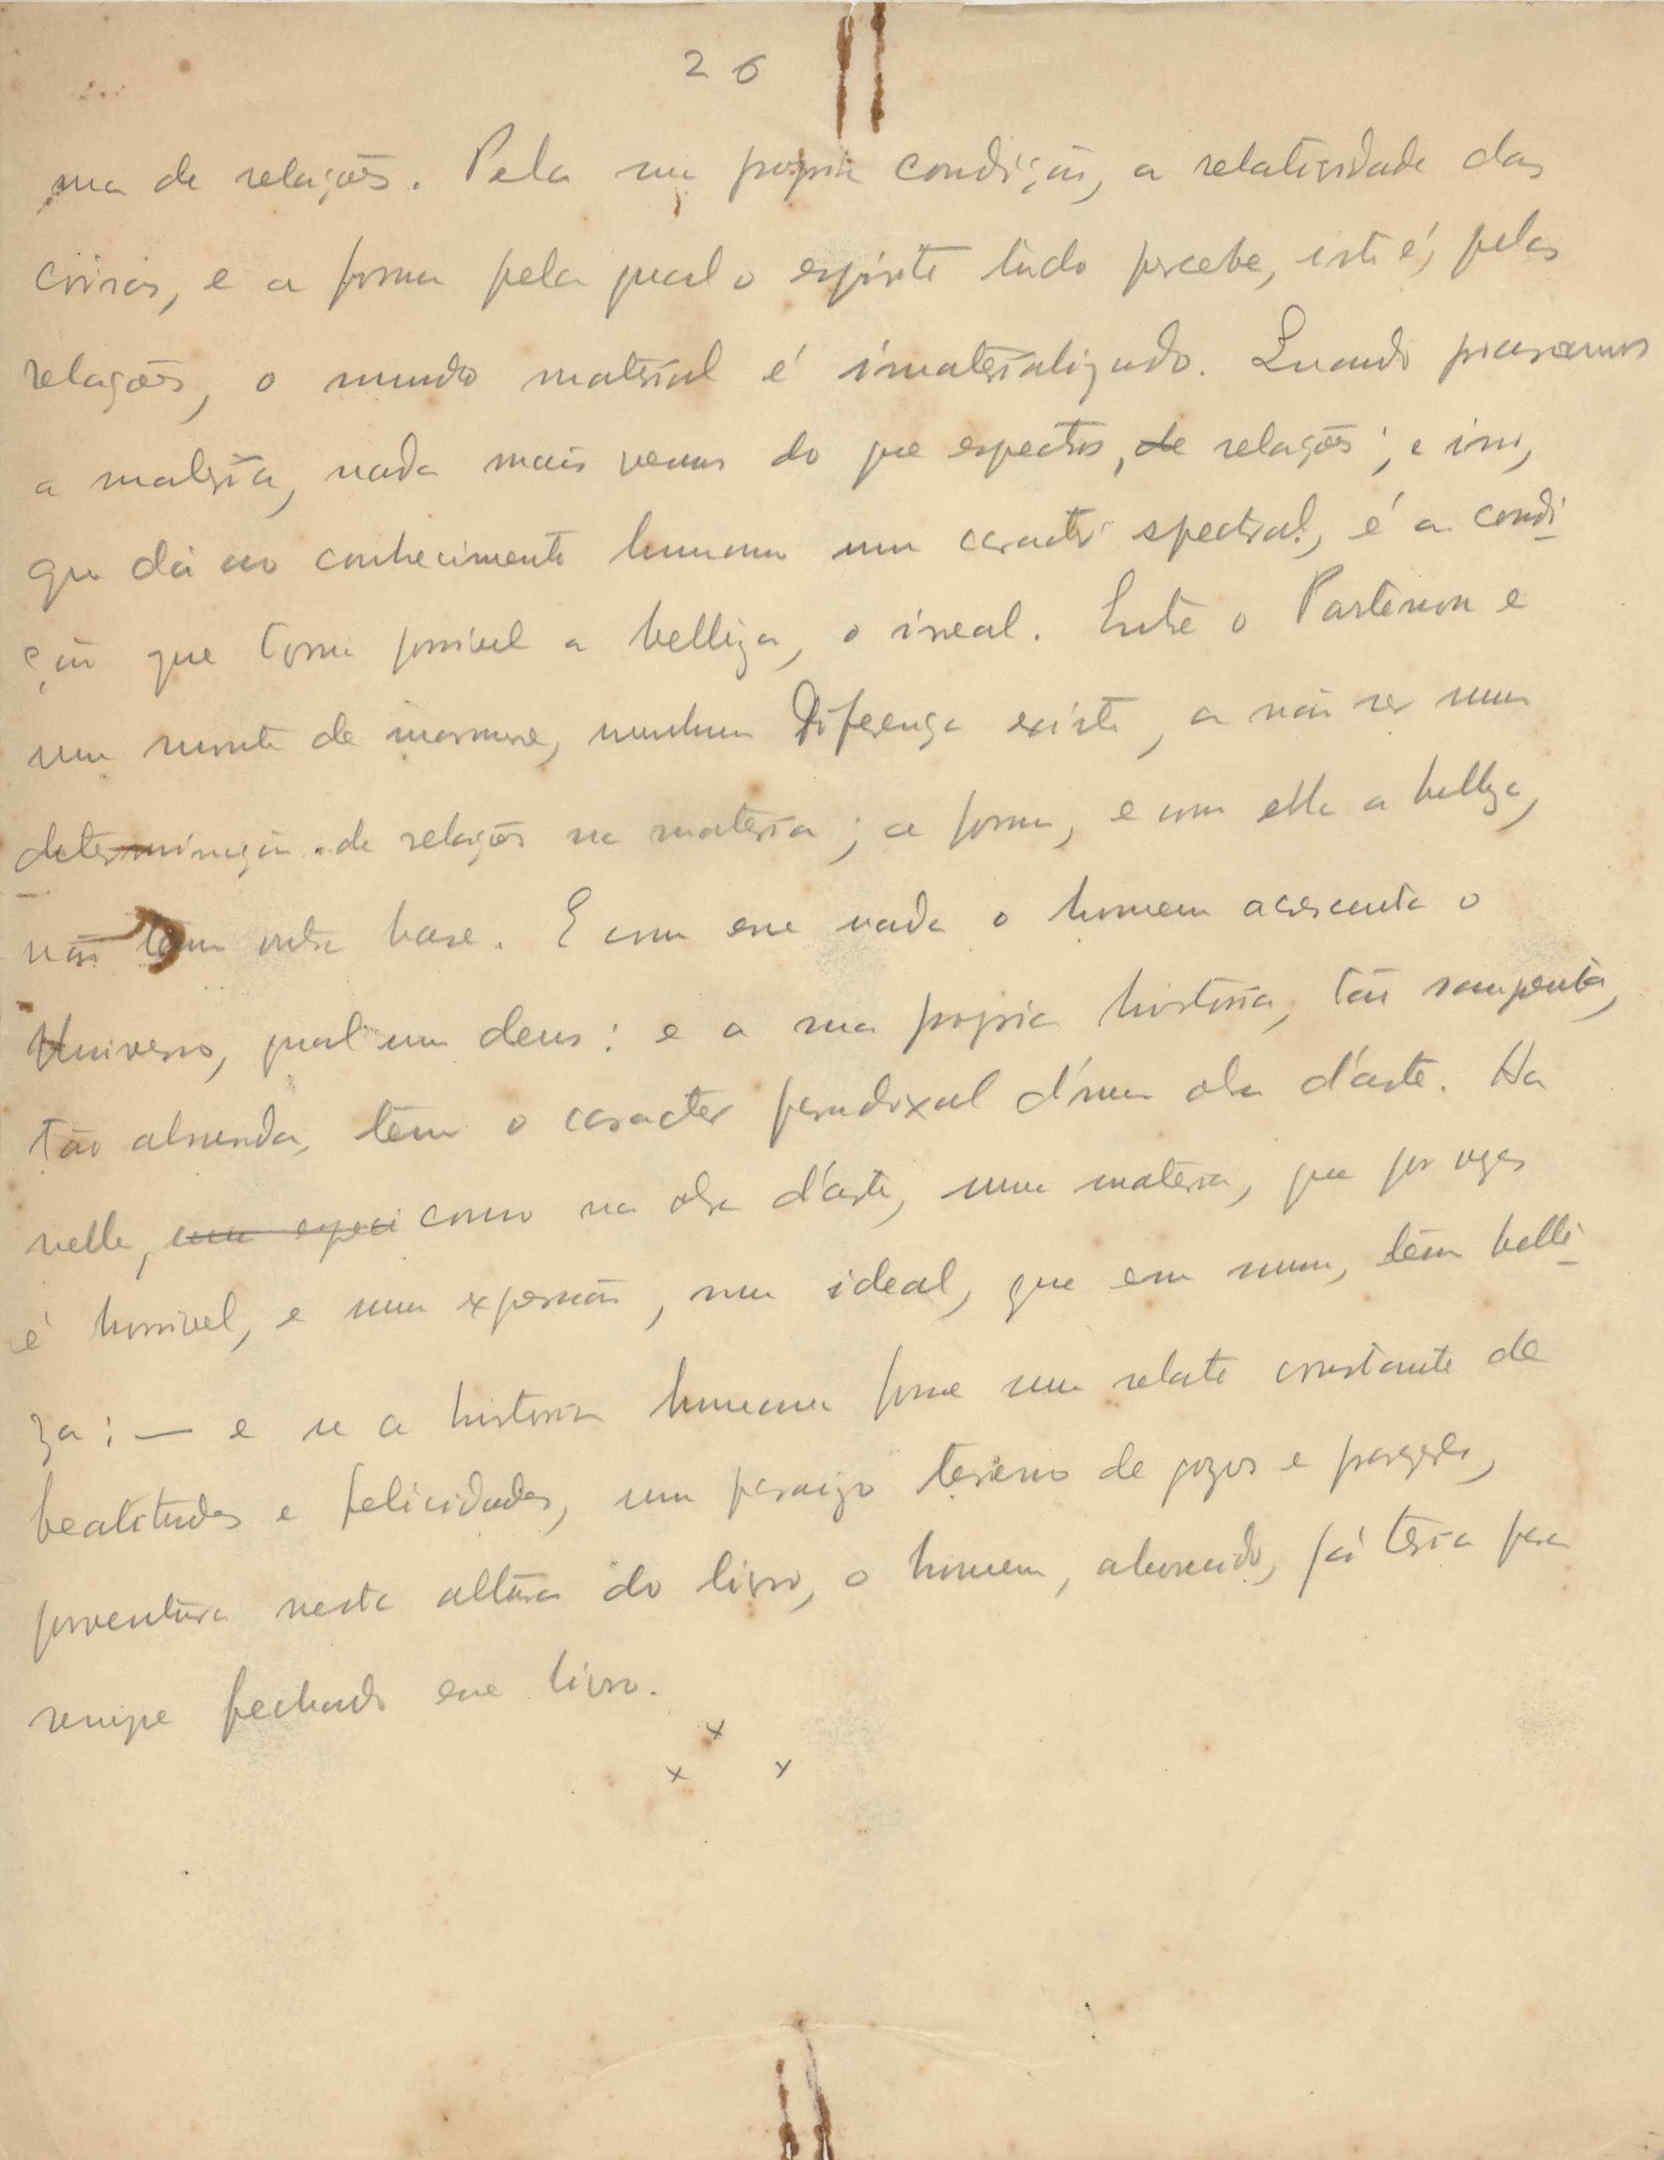 26
ma de relações. Pela sua propria condição, a relatividade das
coisas, e a forma pela qual o espirito tudo percebe, isto é, pelas
relações, o mundo material é imaterializado. Quando pensamos
a materia, nada mais vemos do que espectros, de relações; e isso,
que dá ao conhecimento humano um caracter spectral, é a condi-
ção que torna possivel a belleza, o ideal. Entre o Partenon e
um monte de marmore, nenhuma Diferença existe, a não ser uma
determinação de relações na materia; a forma, e com ella a belleza,
não têm outra base. E com esse nada o homem acrescenta o
Universo, qual um deus: e a sua propria historia, tão sangrenta,
tão absurda, tem o caracter paradoxal d'uma obra d'arte. Ha
nella, como na obra d'arte, uma materia, que por vezes
é horrivel, e uma expressão, um ideal, que em summa, têm belle-
za: — e se a historia humana fosse um relato constante de
beatitudes e felicidades, um paraizo terreno de gozos e prazeres,
porventura nesta altura do livro, o homem, aborrecido, já teria para
sempre fechado esse livro.
x
x x